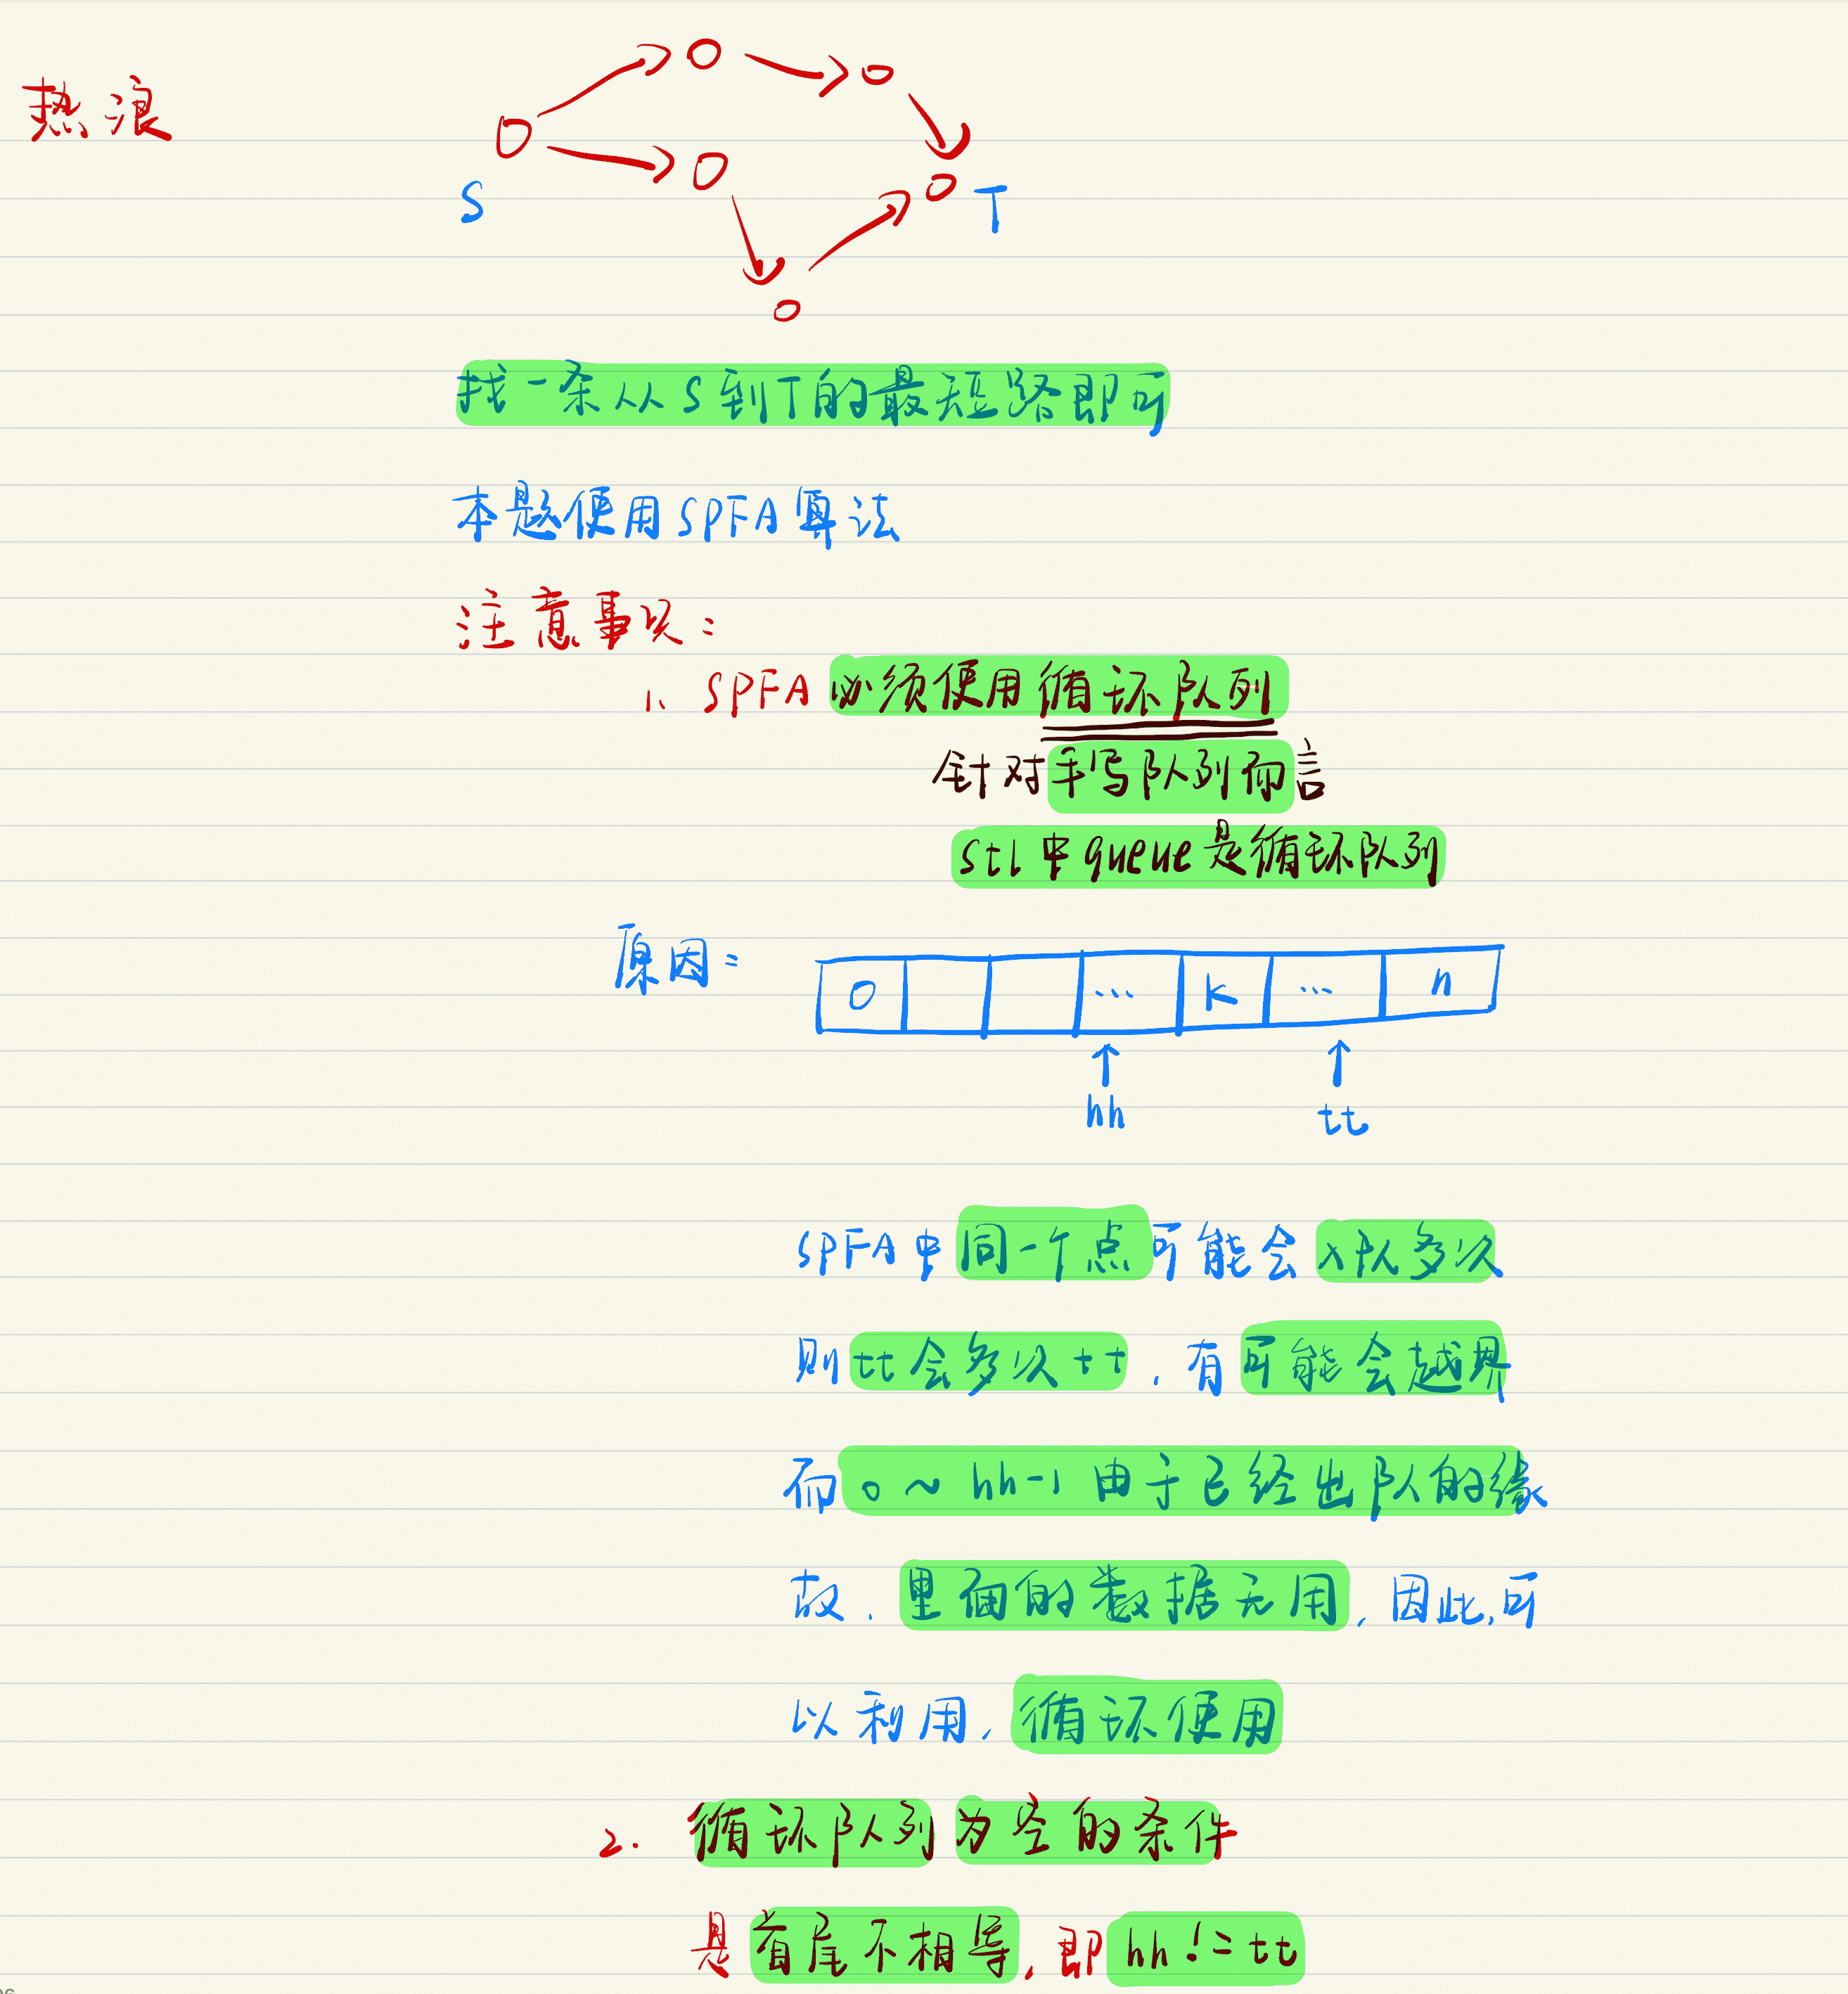 热浪
S
T
找一条从S到T的最短路即可
本题使用SPFA算法
注意事项:
1、SPFA必须使用循环队列
针对手写队列而言
stl中queue是循环队列
原因:
0 ... k ... n
hh tt
SPFA中同一个点可能会入队多次
则tt会多次++,有可能会越界
而0~hh-1由于已经出队的缘
故,里面的数据无用,因此,可
以利用,循环使用
2. 循环队列为空的条件
是首尾不相等,即hh!=tt